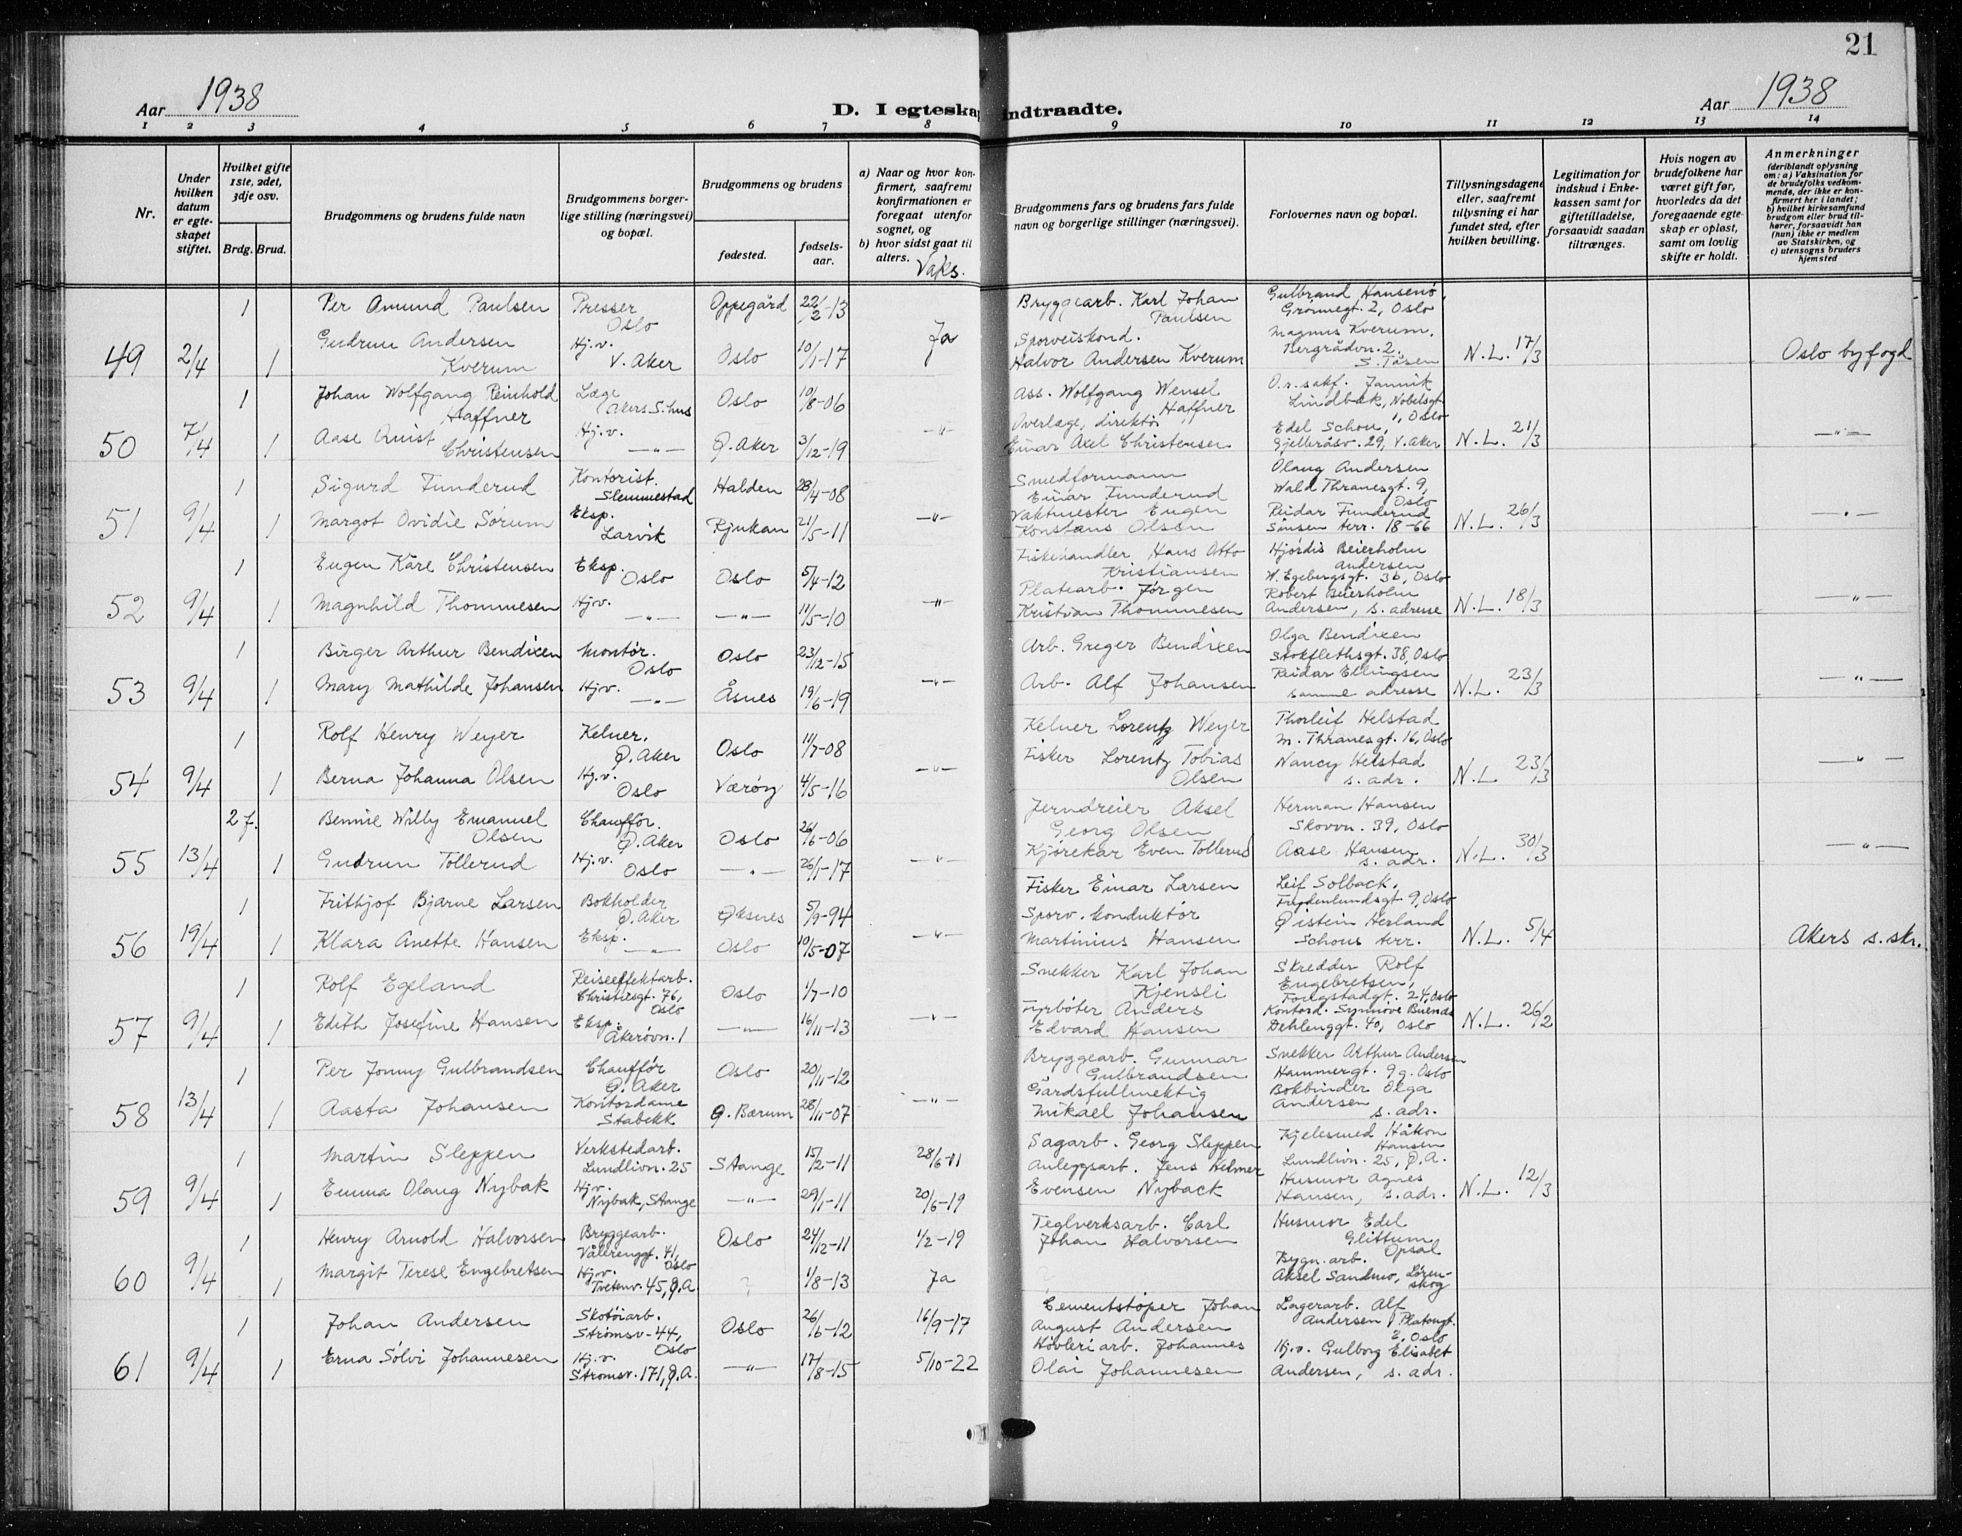 21
Aar 1938
D. I egteskap indtraadte.
Aar 1938
1 2 3 4 5 6 7 8 9 10 11 12 13 14
Nr.
Under hvilken datum er egteskapet stiftet.
Hvilket gifte 1ste, 2det, 3dje osv.
Brdg. Brud.
Brudgommens og brudens fulde navn
Brudgommens borgerlige stilling (næringsvei) og bopæl.
Brudgommens og brudens
fødested.
fødselsaar.
a) Naar og hvor konfirmert, saafremt konfirmationen er foregaat utenfor sognet, og
b) hvor sidst gaat til alters.
Vaks.
Brudgommens fars og brudens fars fulde navn og borgerlige stillinger (næringsvei).
Forlovernes navn og bopæl.
Tillysningsdagene eller, saafremt tillysning ei har fundet sted, efter hvilken bevilling.
Legitimation for indskud i Enkekassen samt for giftetilladelse, forsaavidt saadan tiltrænges.
Hvis nogen av brudefolkene har været gift før, hvorledes da det foregaaende egteskap er opløst, samt om lovlig skifte er holdt.
Anmerkninger
(deriblandt oplysning om: a) Vaksination for de brudefolks vedkommende, der ikke er konfirmert her i landet; b) hvilket kirkesamfund brudgom eller brud tilhører, forsaavidt han (hun) ikke er medlem av Statskirken, og c) utensogns bruders hjemsted
1 Per Amund Paulsen Presser Oslo Oppegård 22/2-13 Bryggearb. Karl Johan Paulsen Gulbrand Hansenø, Grønnegt. 2, Oslo
49 2/4 1 Gudrun Andersen Kverum Hj.v. V. Aker Oslo 10/1-17 Ja Sporveiskond. Halvor Andersen Kverum Magnus Kverum, Bergrådvn. 2. S. Tåsen N.L. 17/3 Oslo byfogd
1 Johan Wolfgang Reinhold Haffner Læge Akers S.hus Oslo 10/8-06 Ass. Wolfgang Wensel Haffner O.r.sakf. Jannik Lindbæk, Nobelsgt 1, Oslo
50 7/4 1 Aase Quist Christensen Hj.v. -"- Ø. Aker 3/12-19 -"- Overlæge, direktør Einar Axel Christensen Edel Schou, Gjelleråsv. 29, V. Aker N.L. 21/3 -"-
1 Sigurd Funderud Kontorist. Slemmestad Halden 28/4-08 Smedformann Einar Funderud Olaug Andersen Wald. Thranesgt. 9, Oslo
51 9/4 1 Margot Ovidie Sørum Eksp. Larvik Rjukan 21/5-11 -"- Vaktmester Eugen Konstans Olsen Reidar Funderud Sinsen terr. 18-66 N.L. 26/3 -"-
1 Eugen Kåre Christensen Eksp. Oslo Oslo 5/4-12 Fiskehandler Hans Otto Kristiansen Hjørdis Beierholm Andersen W. Egebergsgt. 3b, Oslo
52 9/4 1 Magnhild Thommesen Hjv. -"- -"- 11/5-10 -"- Platearb. Jørgen Kristian Thommesen Robert Beierholm Andersen, s. adresse N.L. 18/3 -"-
1 Birger Arthur Bendixen Montør. Oslo Oslo 23/12-15 Arb. Greger Bendixen Olga Bendixen Stokflethsgt. 38, Oslo
53 9/4 1 Mary Mathilde Johansen Hjv. -"- Åsnes 19/6-19 -"- Arb. Alf Johansen Reidar Ellingsen samme adresse N.L. 23/3 -"-
1 Rolf Henry Weyer Kelner. Ø. Aker Oslo 11/7-08 Kelner Lorentz Weyer Thorleif Helstad M. Thranesgt. 16, Oslo
54 9/4 1 Berna Johanna Olsen Hj.v. Oslo Værøy 4/5-16 -"- Fisker Lorentz Tobias Olsen Nancy Helstad s. adr. N.L. 23/3 -"-
2 f. Bennie Willy Emanuel Olsen Chauffør. Ø. Aker Oslo 26/6-06 Jerndreier Aksel Georg Olsen Herman Hansen Skovvn. 39, Oslo
55 13/4 1 Gudrun Tollerud Hj.v. Oslo -"- 26/1-17 -"- Kjørekar Even Tollerud Aase Hansen s. adr. N.L. 30/3 -"-
1 Frithjof Bjarne Larsen Bokholder Ø. Aker Øksnes 5/9-94 Fisker Einar Larsen Leif Solback. Frydenlundsgt 9, Oslo
56 19/4 1 Klara Anette Hansen Eksp. -"- Oslo 10/5-07 -"- Sporv. konduktør Martinius Hansen Øistein Herland Schous terr. N.L. 5/4 Akers s. skr.
1 Rolf Egeland Reiseeffektarb. Christiesgt. 76, Oslo Oslo 1/7-10 Snekker Karl Johan Kjensli Skredder Rolf Engebretsen, Fougstadgt. 24, Oslo
57 9/4 1 Edith Josefine Hansen Eksp. Åkerøvn. 1 -"- 16/11-13 -"- Fyrbøter Anders Edvard Hansen Kontord. Synnøve Buends Dehlenggt. 40, Oslo N.L. 26/2
1 Per Jonny Gulbrandsen Chauffør Ø. Aker Oslo 20/11-12 Bryggearb. Gunnar Gulbrandsen Snekker Arthur Andersen Hammergt. 9 g. Oslo
58 13/4 1 Aasta Johansen Kontordame Stabekk Ø. Bærum 28/11-07 -"- Gårdsfullmektig Mikael Johansen Bokbinder Olga Andersen s. adr.
1 Martin Sleppen Verkstedarb. Lundlivn. 25 Stange 15/2-11 28/6-11 Sagarb. Georg Sleppen Kjelesmed Håkon Hansen Lundlivn. 25, Ø.A.
59 9/4 1 Emma Olaug Nybak Hjv. Nybak, Stange -"- 29/1-11 20/6-19 Anleggsarb. Jens Helmer Evensen Nyback Husmor Agnes Hansen, s. adr. N.L. 12/3
1 Henry Arnold Halvorsen Bryggearb. Vålerenggt. 41, Oslo Oslo 24/12-11 1/2-19 Teglverksarb. Carl Johan Halvorsen Husmor Edel Glittum Opsal
60 9/4 1 Margit Terese Engebretsen Hj.v. Tvetenv. 45, Ø.A ? 1/8-13 Ja Bygn. arb. Aksel Sandmo, Lørenskog
1 Johan Andersen Skotøiarb. Strømsv. 44, Oslo Oslo 26/6-12 16/9-17 Cementstøper Johan August Andersen Lagerarb. Alf Andersen, Platougt. 2, Oslo
61 9/4 1 Erna Sølvi Johannesen Hj.v. Strømsv. 171, Ø.A. -"- 17/8-15 5/10-22 Høvleriarb. Johannes Olai Johannesen Hj.v. Gulborg Elisabet Andersen, s. adr.